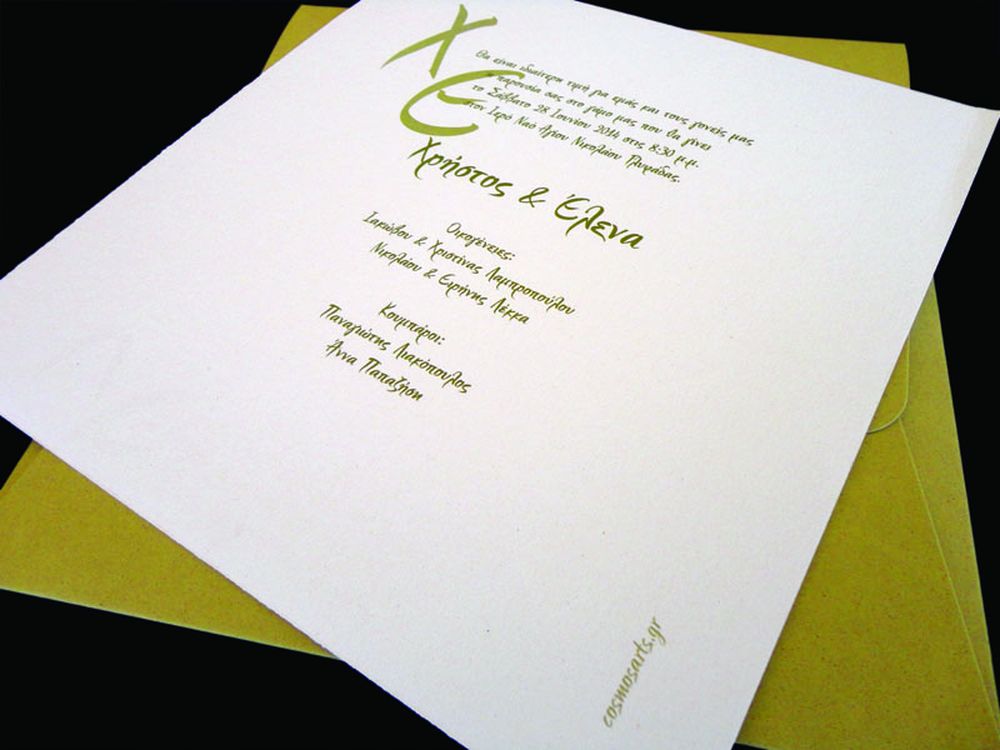 Χ
Ε
Θα είναι ιδιαίτερη τιμή για εμάς και τους γονείς μας
η παρουσία σας στο γάμο μας που θα γίνει
το Σάββατο 28 Ιουνίου 2014 στις 8:30 μ.μ.
στον Ιερό Ναό Αγίου Νικολάου Γλυφάδας.
Χρήστος & Έλενα
Οικογένειες:
Ιακώβου & Χριστίνας Λαμπροπούλου
Νικολάου & Ειρήνης Λέκκα
Κουμπάροι:
Παναγιώτης Λιακόπουλος
Άννα Παπαζήση
cosmosarts.gr